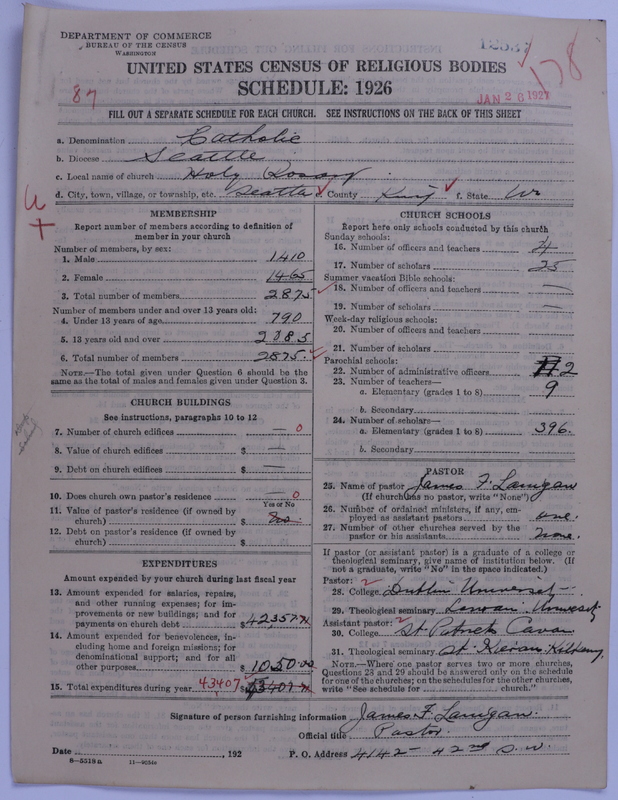 DEPARTMENT OF COMMERCE
BUREAU OF THE CENSUS
WASHINGTON
UNITED STATES CENSUS OF RELIGIOUS BODIES
SCHEDULE: 1926
87
178
JAN 26 1927
FILL OUT A SEPARATE SCHEDULE FOR EACH CHURCH. SEE INSTRUCTIONS ON THE BACK OF THIS SHEET
a. Denomination Catholic
b. Diocese Seattle
c. Local name of church Holy Rosary
d. City, town, village, or township, etc. Seattle e. County King f. State Wn
MEMBERSHIP
Report number of members according to definition of
member in your church
Number of members, by sex:
1. Male 1410
2. Female 1465
3. Total number of members 2875
Number of members under and over 13 years old:
4. Under 13 years of age 790
5. 13 years old and over 2085
6. Total number of members 2875
NOTE.—The total given under Question 6 should be the
same as the total of males and females given under Question 3.
CHURCH BUILDINGS
See instructions, paragraphs 10 to 12
7. Number of church edifices — 0
8. Value of church edifices $ —
9. Debt on church edifices $ —
10. Does church own pastor's residence — 0
Yes or No
11. Value of pastor's residence (if owned by
church) $
12. Debt on pastor's residence (if owned by
church) $
EXPENDITURES
Amount expended by your church during last fiscal year
13. Amount expended for salaries, repairs,
and other running expenses; for im-
provements or new buildings; and for
payments on church debt $ 42357.
14. Amount expended for benevolences, in-
cluding home and foreign missions; for
denominational support; and for all
other purposes $ 1050.00
15. Total expenditures during year 43407 $ 43407
CHURCH SCHOOLS
Report here only schools conducted by this church
Sunday schools:
16. Number of officers and teachers 4
17. Number of scholars 25
Summer vacation Bible schools:
18. Number of officers and teachers —
19. Number of scholars —
Week-day religious schools:
20. Number of officers and teachers
21. Number of scholars
Parochial schools:
22. Number of administrative officers 2
23. Number of teachers—
a. Elementary (grades 1 to 8) 9
b. Secondary
24. Number of scholars—
a. Elementary (grades 1 to 8) 396.
b. Secondary
PASTOR
25. Name of pastor James F. Lanigan
(If church has no pastor, write "None")
26. Number of ordained ministers, if any, em-
ployed as assistant pastors one.
27. Number of other churches served by the
pastor or his assistants none.
If pastor (or assistant pastor) is a graduate of a college or
theological seminary, give name of institution below. (If
not a graduate, write "No" in the space indicated.)
Pastor: 2
28. College Dublin University
29. Theological seminary Louvain University
Assistant pastor: 2
30. College St Patricks Cavan
31. Theological seminary St. Kieran Kilkenny
NOTE.—Where one pastor serves two or more churches,
Questions 28 and 29 should be answered only on the schedule
for one of the churches; on the schedules for the other churches,
write "See schedule for church."
Signature of person furnishing information James F. Lanigan.
Official title Pastor.
Date , 192 P. O. Address 4142 - 42nd S.W.
8—5518a 11—9284b